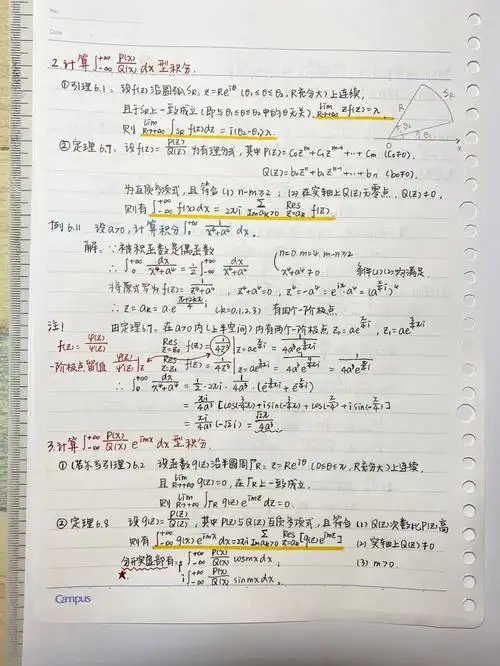 No.
Date
2.计算∫₋∞⁺∞ P(x)/Q(x) dx 型积分.
①引理6.1 设f(z)沿圆弧 S_R: z=Re^{iθ} (θ₁≤θ≤θ₂, R充分大)上连续,
且于S_R上一致成立(即与θ₁≤θ≤θ₂中的θ无关), lim_{R→+∞} zf(z)=λ.
则 lim_{R→+∞} ∫_{S_R} f(z)dz = i(θ₂-θ₁)λ.
S_R
R
θ₂
θ₁
②定理6.7. 设f(z)=P(z)/Q(z) 为有理分式, 其中 P(z)=C₀z^m+C₁z^{m-1}+...+C_m (C₀≠0),
Q(z)=b₀z^n+b₁z^{n-1}+...+b_n (b₀≠0),
为互质多项式, 且符合 (1) n-m≥2; (2)在实轴上Q(z)无零点. Q(z)≠0,
则有 ∫₋∞⁺∞ f(x)dx = 2πi ∑_{Im a_k>0} Res_{z=a_k} f(z).
例6.11 设a>0, 计算积分∫₀⁺∞ 1/(x⁴+a⁴) dx.
解: ∵被积函数是偶函数
∴ ∫₀⁺∞ dx/(x⁴+a⁴) = 1/2 ∫₋∞⁺∞ dx/(x⁴+a⁴)
n=0.m=4. m-n≥2
x⁴+a⁴≠0
条件(1)(2)均满足.
将原式写为 f(z)=1/(z⁴+a⁴), z⁴+a⁴=0, z⁴=-a⁴=e^{iπ}·a⁴=(a e^{π/4 i})⁴
∴ z=a_k=a·e^{(π+2kπ)/4 i} (k=0,1,2,3) 有四个一阶极点.
注1
由定理6.7. 在a>0内(上半空间)内有两个一阶极点 z₀=ae^{π/4 i}, z₁=ae^{3/4 πi}
f(z)=φ(z)/ψ(z)
Res_{z=z₀} f(z)=1/4z³ |z=ae^{π/4 i} = 1/4a³e^{3/4 πi}
一阶极点留值 φ(z)/ψ'(z)|z
Res_{z=z₁} f(z)=1/4z³ |z=ae^{3/4 πi} = 1/4a³e^{9/4 πi} = 1/4a³e^{π/4 i}
∴ ∫₀⁺∞ dx/(x⁴+a⁴) = 1/2·2πi·1/4a³·(e^{-3/4 πi}+e^{-π/4 i})
= πi/4a³ [cos(-3/4 π)+isin(-3/4 π)+cos(-π/4)+isin(-π/4)]
= πi/4a³ (-√2i) = √2π/4a³.
3.计算∫₋∞⁺∞ P(x)/Q(x) e^{imx} dx 型积分.
①(若尔当引理)6.2 设函数g(z)沿半圆周Γ_R: z=Re^{iθ} (0≤θ≤π, R充分大)上连续,
且 lim_{R→+∞} g(z)=0, 在Γ_R上一致成立,
则 lim_{R→+∞} ∫_{Γ_R} g(z)e^{imz}dz=0.
②定理6.8 设g(z)=P(z)/Q(z), 其中P(z)与Q(z)互质多项式, 且符合 (1) Q(z)次数比P(z)高
则有 ∫₋∞⁺∞ g(x)e^{imx}dx=2πi ∑_{Im a_k>0} Res_{z=a_k}[g(z)e^{imz}] (2) 实轴上Q(z)≠0
分开实虚部有: ∫₋∞⁺∞ P(x)/Q(x) cosmx dx, (3) m>0.
★ ∫₋∞⁺∞ P(x)/Q(x) sinmx dx.
Campus